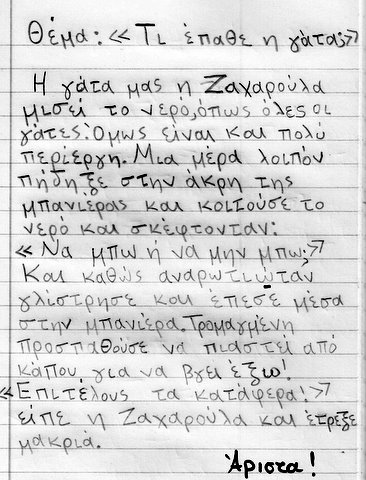 Θέμα: «Τι έπαθε η γάτα;»
Η γάτα μας η Ζαχαρούλα
μισεί το νερό, όπως όλες οι
γάτες. Όμως είναι και πολύ
περίεργη. Μια μέρα λοιπόν
πήδηξε στην άκρη της
μπανιέρας και κοιτούσε το
νερό και σκέφτονταν:
«Να μπω ή να μην μπω;»
Και καθώς αναρωτιώταν
γλίστρησε και έπεσε μέσα
στην μπανιέρα. Τρομαγμένη
προσπαθούσε να πιαστεί από
κάπου για να βγει έξω!
«Επιτέλους τα κατάφερα!»
είπε η Ζαχαρούλα και έτρεξε
μακριά.
Άριστα!